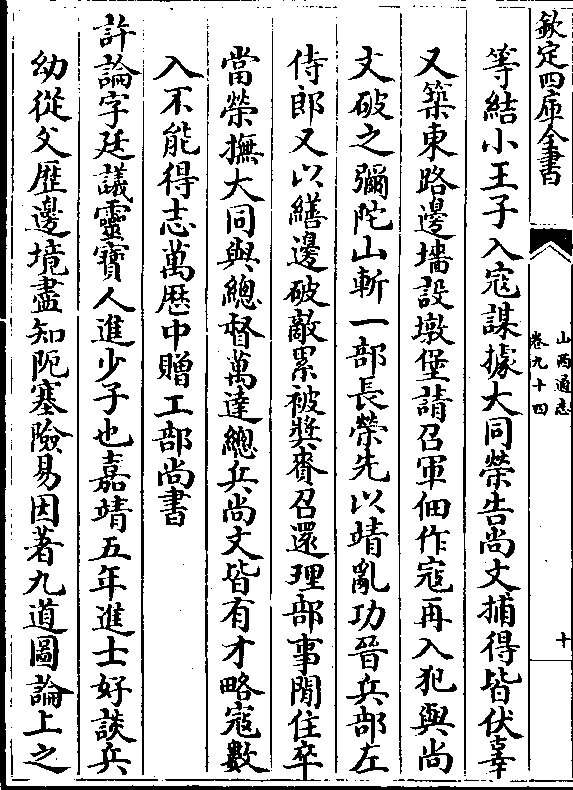 欽定四庫全書
山西通志
卷九十四
十
等結小王子入寇謀據大同榮告尚文捕得皆伏辜
又築東路邊墻設墩堡請召軍佃作寇再入犯與尚
文破之彌陀山斬一部長榮先以靖亂功晉兵部左
侍郎又以繕邊破敵累被奬賚召還理部事閒住卒
當榮撫大同與總督萬達總兵尚文皆有才略寇數
入不能得志萬歷中贈工部尚書
許論字廷議靈寶人進少子也嘉靖五年進士好談兵
幼從父歷邊境盡知阨塞險易因著九道圖論上之